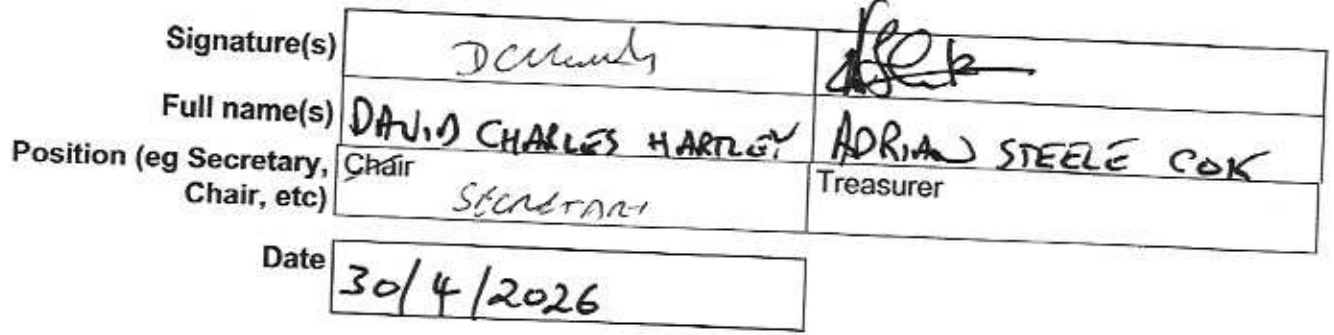 Signature(s)
Full name(s) DAVID CHARLES HARTLEY ADRIAN STEELE COK
Position (eg Secretary, Chair Treasurer
Chair, etc) SECRETARY
Date 30/4/2026